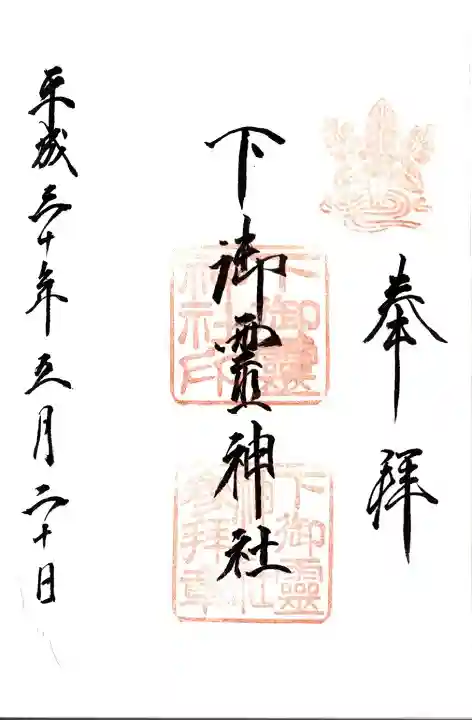 奉拝
下御靈神社
平成三十年五月二十日
下御靈神社印
下御靈神社参拝章